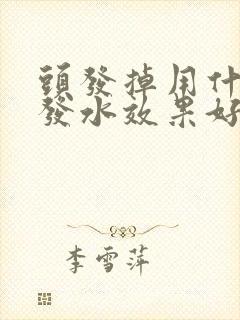 頭發掉用什
發水效果好
李雪萍